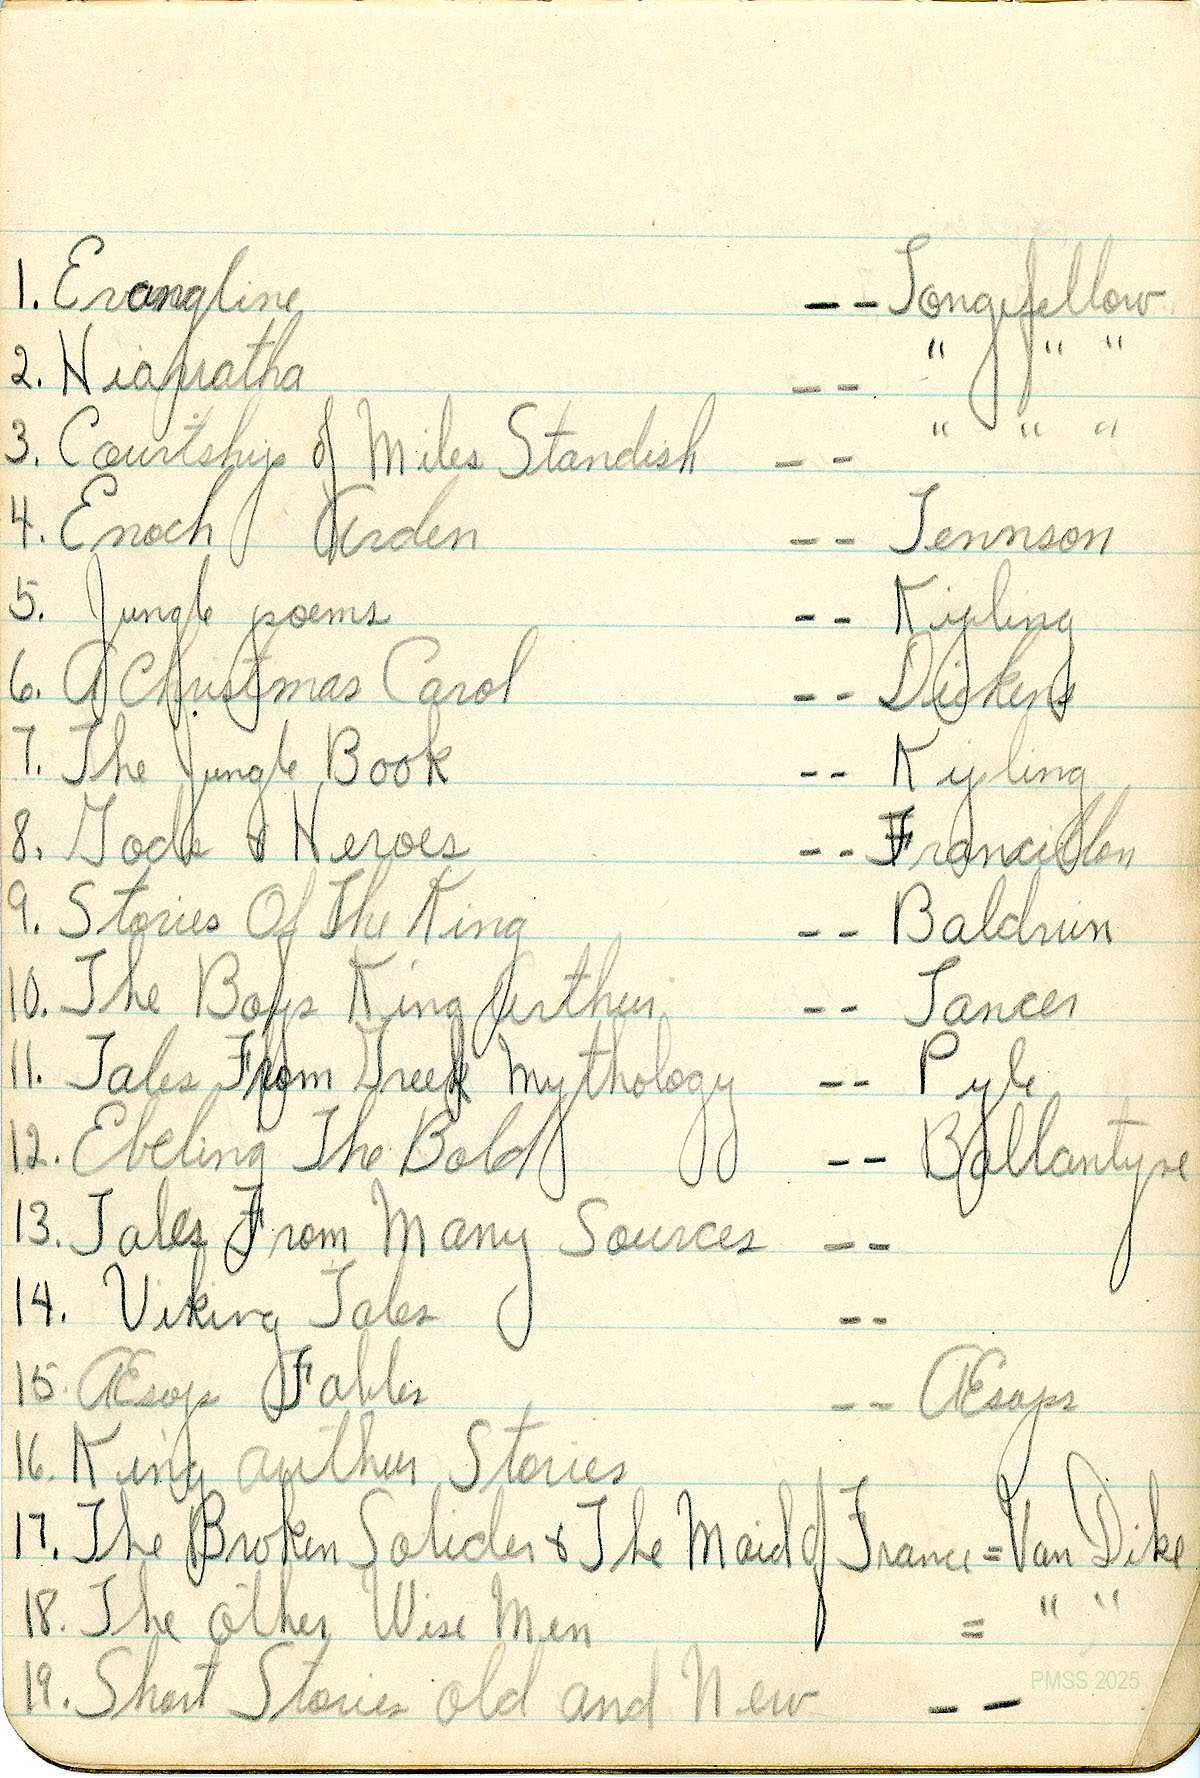 1. Evangline -- Longfellow
2. Hiawatha -- " " "
3. Courtship of Miles Standish -- " " "
4. Enoch Arden -- Tennson
5. Jungle poems -- Kipling
6. A Christmas Carol -- Dickens
7. The Jungle Book -- Kipling
8. Gods & Heroes -- Francillon
9. Stories Of The King -- Baldwin
10. The Boys King Arthur -- Lancer
11. Tales From Greek Mythology -- Pyle
12. Ebeling The Bold -- Ballantyne
13. Tales From Many Sources --
14. Viking Tales --
15. Æsops Fables -- Æsops
16. King Arthur Stories
17. The Broken Solider & The Maid of France = Van Dike
18. The other Wise Men = " "
19. Short Stories old and New --
PMSS 2025